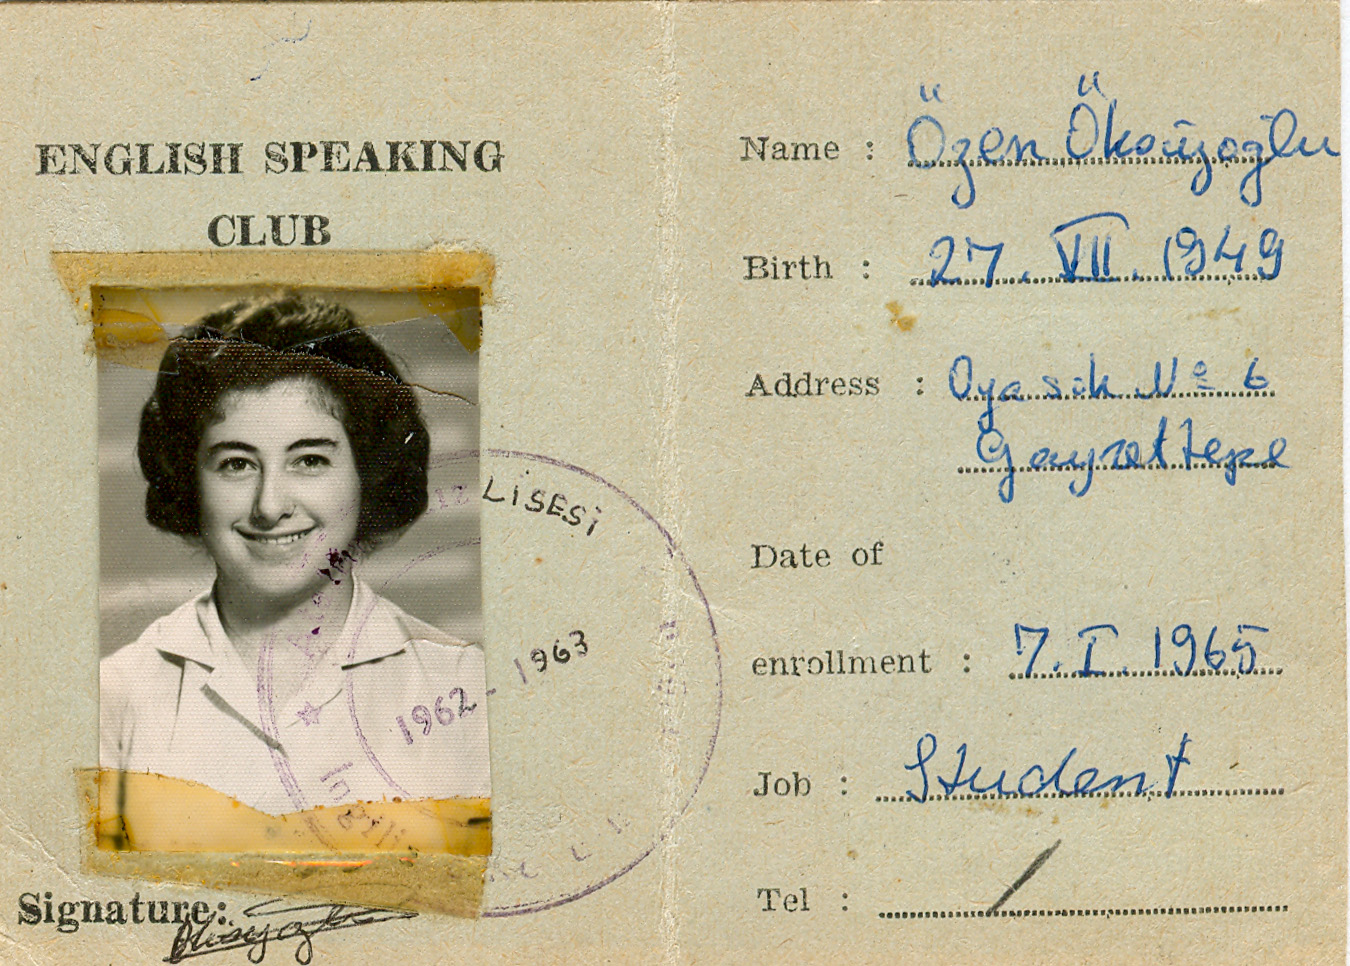 ENGLISH SPEAKING
CLUB
LİSESİ
1962 - 1963
İngiliz
Signature:
Name : Özen Öküzoğlu
Birth : 27. VII. 1949
Address : Oya sok No 6
Gayrettepe
Date of
enrollment : 7. I. 1965
Job : Student
Tel : /